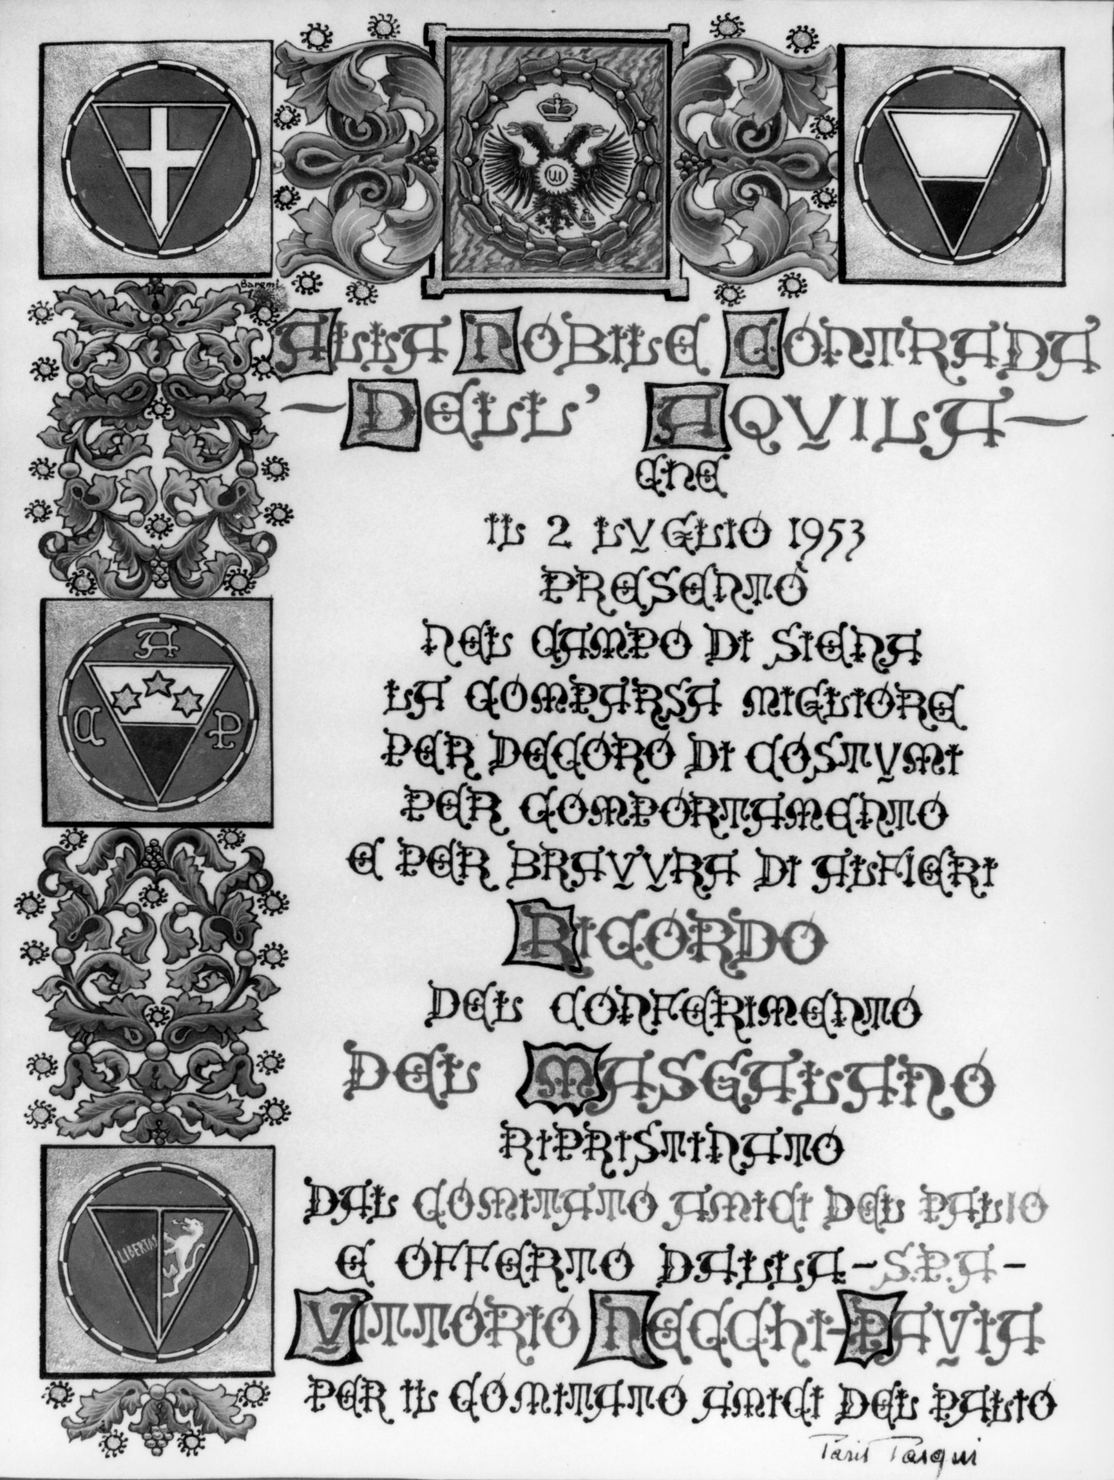 Baremi
ALLA NOBILE CONTRADA
- DELL' AQVILA -
CHE
IL 2 LVGLIO 1953
PRESENTÒ
NEL CAMPO DI SIENA
LA COMPARSA MIGLIORE
PER DECORO DI COSTVMI
PER COMPORTAMENTO
E PER BRAVVRA DI ALFIERI
RICORDO
DEL CONFERIMENTO
DEL MASGALANO
RIPRISTINATO
DAL COMITATO AMICI DEL PALIO
E OFFERTO DALLA - S.P.A -
VITTORIO NECCHI - PAVIA
PER IL COMITATO AMICI DEL PALIO
A
C P
LIBERTAS